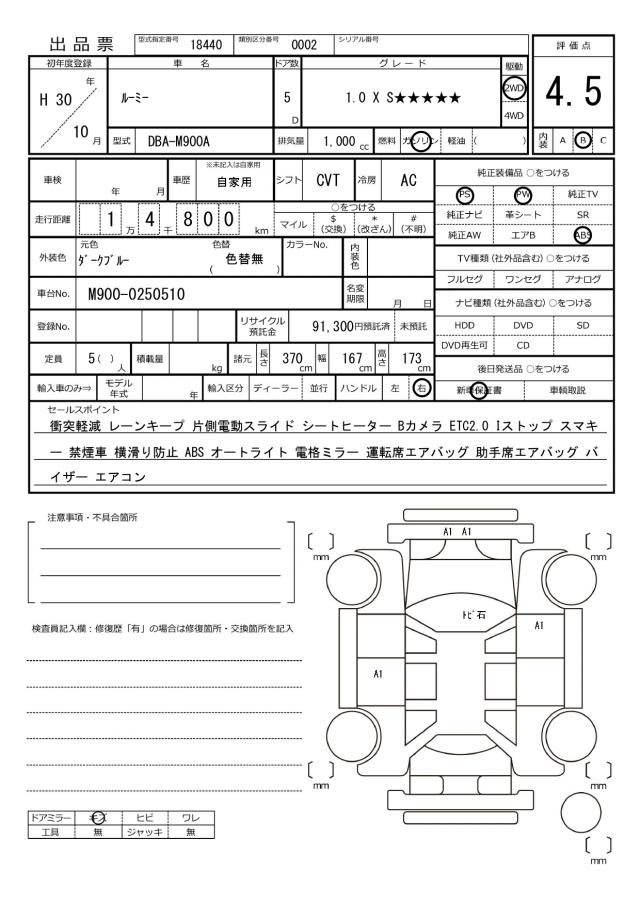 出品票
型式指定番号 18440 類別区分番号 0002 シリアル番号
評価点
4.5
内装 A B C
初年度登録 車名 ドア数 グレード 駆動
H 30 年 10 月
ルーミー
5 D
1.0 X S★★★★★
2WD
4WD
型式 DBA-M900A 排気量 1,000 cc 燃料 ガソリン 軽油 ( )
車検 年 月 車歴 ※未記入は自家用 自家用 シフト CVT 冷房 AC
走行距離 1 万 4 千 8 0 0 km
○をつける
マイル $(交換) *(改ざん) #(不明)
外装色 元色 ダークブルー 色替 ( 色替無 ) カラーNo. 内装色
車台No. M900-0250510 名変期限 月 日
登録No. リサイクル預託金 91,300円預託済 未預託
定員 5 ( ) 人 積載量 kg 諸元 長さ 370 cm 幅 167 cm 高さ 173 cm
輸入車のみ⇒ モデル年式 年 輸入区分 ディーラー 並行 ハンドル 左 右
純正装備品 ○をつける
PS PW 純正TV
純正ナビ 革シート SR
純正AW エアB ABS
TV種類(社外品含む) ○をつける
フルセグ ワンセグ アナログ
ナビ種類(社外品含む) ○をつける
HDD DVD SD
DVD再生可 CD
後日発送品 ○をつける
新車保証書 車輌取説
セールスポイント
衝突軽減 レーンキープ 片側電動スライド シートヒーター Bカメラ ETC2.0 Iストップ スマキ
ー 禁煙車 横滑り防止 ABS オートライト 電格ミラー 運転席エアバッグ 助手席エアバッグ バ
イザー エアコン
注意事項・不具合箇所
検査員記入欄：修復歴「有」の場合は修復箇所・交換箇所を記入
ドアミラー キズ ヒビ ワレ
工具 無 ジャッキ 無
A1 A1
[ ] mm
[ ] mm
トビ石
A1
A1
[ ] mm
[ ] mm
[ ] mm